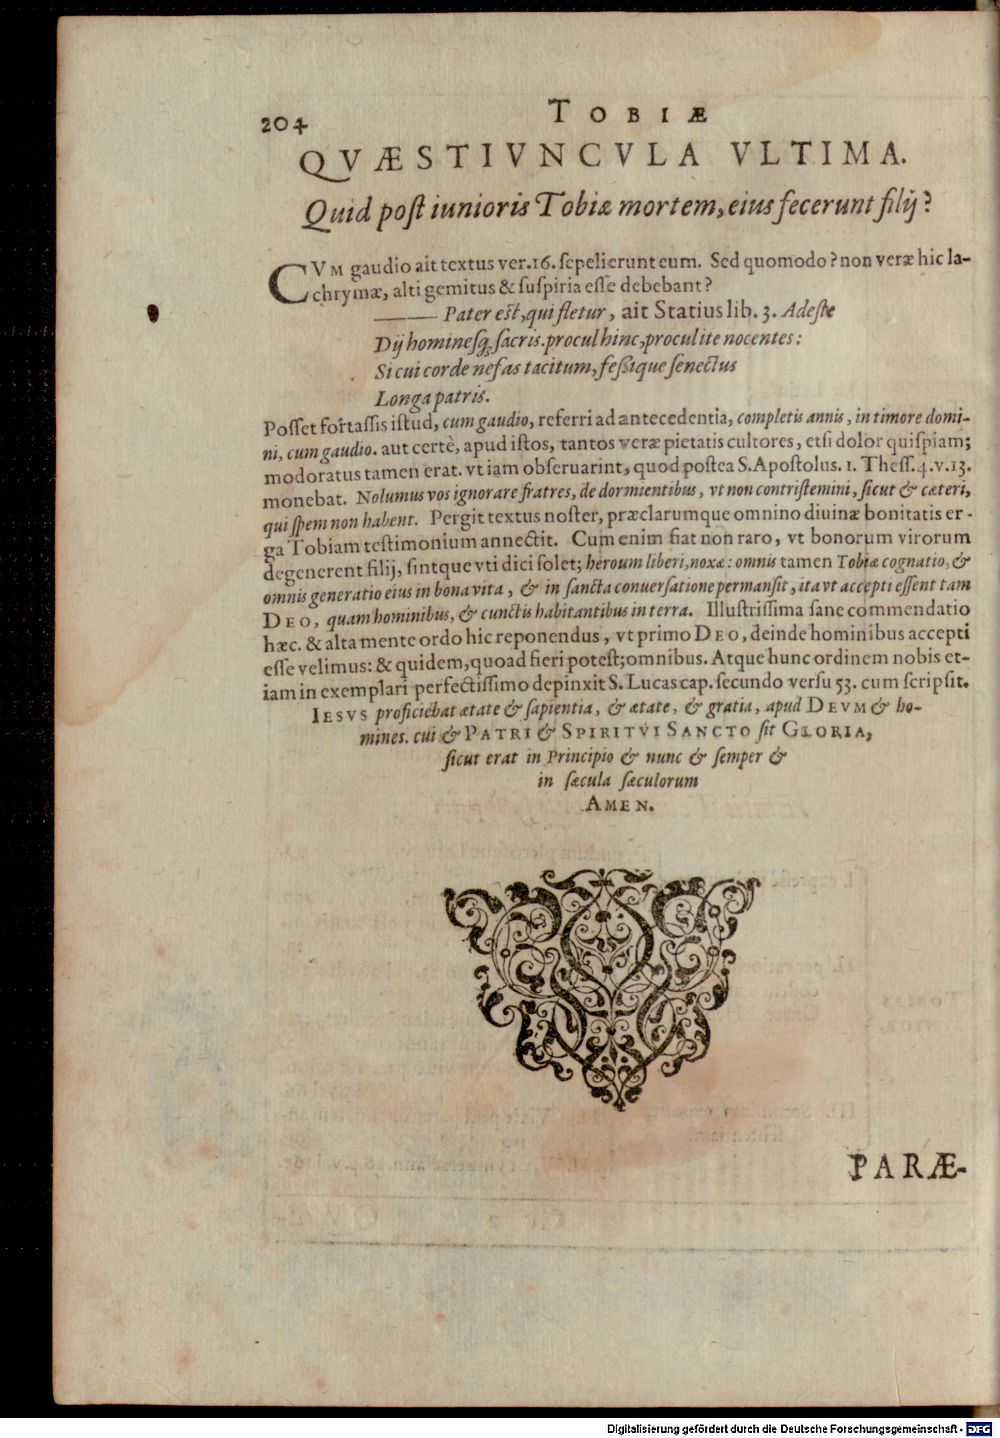 204
TOBIÆ
QVÆSTIVNCVLA VLTIMA.
Quid post iunioris Tobiæ mortem, eius fecerunt filij?
CVM gaudio ait textus ver. 16. sepelierunt eum. Sed quomodo? non veræ hic la-
chrymæ, alti gemitus & suspiria esse debebant?
——— Pater est, qui fletur, ait Statius lib. 3. Adeste
Dij hominesq́; sacris. procul hinc, procul ite nocentes:
Si cui corde nefas tacitum, fessique senectus
Longa patris.
Posset fortassis istud, cum gaudio, referri ad antecedentia, completis annis, in timore domi-
ni, cum gaudio. aut certè, apud istos, tantos veræ pietatis cultores, etsi dolor quispiam;
modoratus tamen erat. vt iam obseruarint, quod postea S. Apostolus. 1. Thess. 4. v. 13.
monebat. Nolumus vos ignorare fratres, de dormientibus, vt non contristemini, sicut & cæteri,
qui spem non habent. Pergit textus noster, præclarumque omnino diuinæ bonitatis er-
ga Tobiam testimonium annectit. Cum enim fiat non raro, vt bonorum virorum
degenerent filij, sintque vti dici solet; heroum liberi, noxæ: omnis tamen Tobiæ cognatio, &
omnis generatio eius in bona vita, & in sancta conuersatione permansit, ita vt accepti essent tam
DEO, quam hominibus, & cunctis habitantibus in terra. Illustrissima sane commendatio
hæc. & alta mente ordo hic reponendus, vt primo DEO, deinde hominibus accepti
esse velimus: & quidem, quoad fieri potest; omnibus. Atque hunc ordinem nobis et-
iam in exemplari perfectissimo depinxit S. Lucas cap. secundo versu 53. cum scripsit.
IESVS proficiebat ætate & sapientia, & ætate, & gratia, apud DEVM & ho-
mines. cui & PATRI & SPIRITVI SANCTO sit GLORIA,
sicut erat in Principio & nunc & semper &
in sæcula sæculorum
AMEN.
PARÆ-
Digitalisierung gefördert durch die Deutsche Forschungsgemeinschaft - DFG